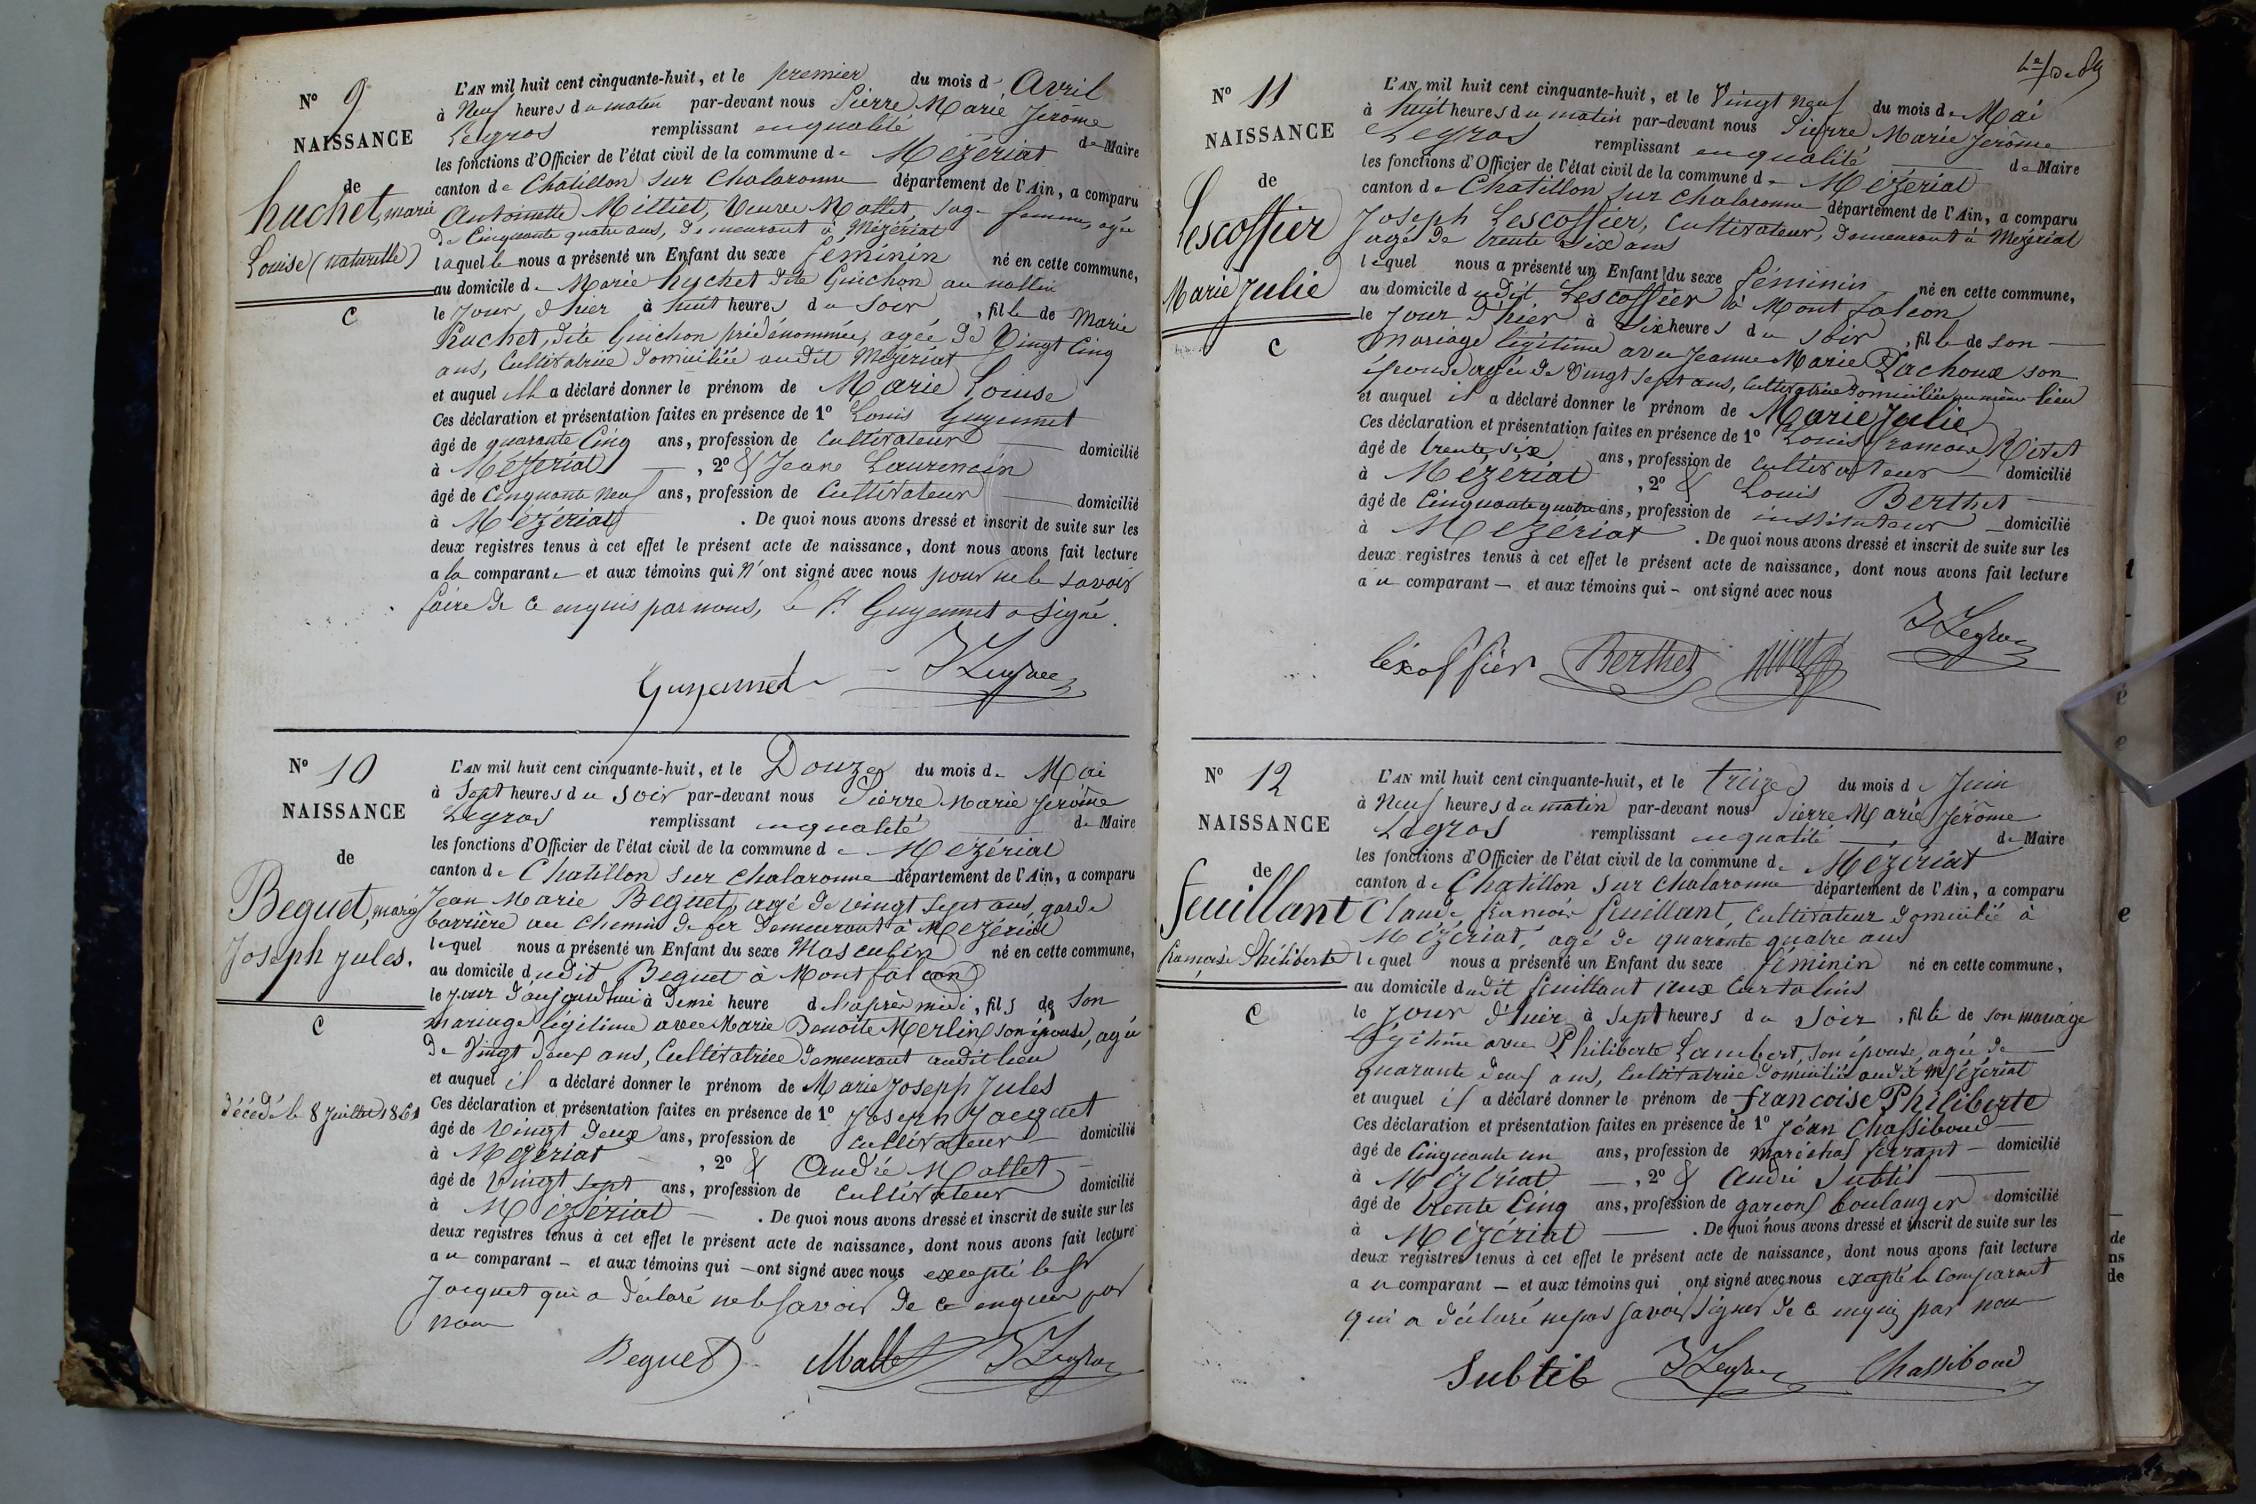 N° 9
NAISSANCE
de
huchet, marie
Louise (naturelle)
C
L'AN mil huit cent cinquante-huit, et le premier du mois d' Avril
à Neuf heures du matin par-devant nous Pierre Marie Jérôme
Legros remplissant en qualité de Maire
les fonctions d'Officier de l'état civil de la commune de Mézériat
canton de Châtillon sur Chalaronne département de l'Ain, a comparu
Antoinette Milliet, Veuve Mallet, sage femme, agée
de Cinquante quatre ans, demeurant à Mézériat
laquelle nous a présenté un Enfant du sexe féminin né en cette commune,
au domicile de Marie huchet dite Guichon au
le jour d'hier à huit heures du soir, fille de Marie
huchet, dite Guichon prédénommée, agée de Vingt Cinq
ans, Cultivatrice domiciliée audit Mézériat
et auquel elle a déclaré donner le prénom de Marie Louise
Ces déclaration et présentation faites en présence de 1° Louis Guyennet
âgé de quarante Cinq ans, profession de Cultivateur domicilié
à Mézériat, 2° & Jeane Laurencin
âgé de Cinquante Neuf ans, profession de Cultivateur domicilié
à Mézériat. De quoi nous avons dressé et inscrit de suite sur les
deux registres tenus à cet effet le présent acte de naissance, dont nous avons fait lecture
a la comparante et aux témoins qui N'ont signé avec nous pour ne le savoir
faire de ce enquis par nous, le Sr Guyennet a signé.
Guyennet JLegros
N° 10
NAISSANCE
de
Beguet, marie
Joseph Jules.
C
décédé le 8 Juillet 1861
L'AN mil huit cent cinquante-huit, et le Douze du mois de Mai
à Sept heures du soir par-devant nous Pierre Marie Jérôme
Legros remplissant en qualité de Maire
les fonctions d'Officier de l'état civil de la commune de Mézériat
canton de Chatillon sur Chalaronne département de l'Ain, a comparu
Jean Marie Beguet, agé de vingt sept ans, garde
barrière au Chemin de fer demeurant à Mézériat
lequel nous a présenté un Enfant du sexe Masculin né en cette commune,
au domicile dudit Beguet à Montfalcon
le jour d'aujourdhui à demi heure de l'après midi, fils de son
mariage légitime avec Marie Benoite Merlin son épouse, agée
de Vingt deux ans, Cultivatrice demeurant audit lieu
et auquel il a déclaré donner le prénom de Marie Joseph Jules
Ces déclaration et présentation faites en présence de 1° Joseph Jacquet
âgé de Vingt deux ans, profession de Cultivateur domicilié
à Mézériat, 2° & André Mallet
âgé de Vingt sept ans, profession de Cultivateur domicilié
à Mézériat. De quoi nous avons dressé et inscrit de suite sur les
deux registres tenus à cet effet le présent acte de naissance, dont nous avons fait lecture
au comparant – et aux témoins qui – ont signé avec nous excepté le Sr
Jacquet qui a déclaré ne le savoir de ce enquis par
nous
Beguet Mallet JLegros
N° 11
NAISSANCE
de
Lescoffier
Marie Julie
C
L'AN mil huit cent cinquante-huit, et le Vingt neuf du mois de Mai
à huit heures du matin par-devant nous Pierre Marie Jérôme
Legros remplissant en qualité de Maire
les fonctions d'Officier de l'état civil de la commune de Mézériat
canton de Chatillon sur Chalaronne département de l'Ain, a comparu
Joseph Lescoffier, Cultivateur, demeurant à Mézériat
agés de trente six ans
lequel nous a présenté un Enfant du sexe féminin né en cette commune,
au domicile dudit Lescoffier à Montfalcon
le jour d'hier à six heures du soir, fille de son
mariage légitime avec Jeanne Marie Pachoux son
épouse agée de Vingt sept ans, Cultivatrice domiciliée au même lieu
et auquel il a déclaré donner le prénom de Marie Julie
Ces déclaration et présentation faites en présence de 1° Louis francois
âgé de trente six ans, profession de Cultivateur domicilié
à Mézériat, 2° & Louis Berthet
âgé de Cinquante quatre ans, profession de instituteur domicilié
à Mézériat. De quoi nous avons dressé et inscrit de suite sur les
deux registres tenus à cet effet le présent acte de naissance, dont nous avons fait lecture
au comparant – et aux témoins qui – ont signé avec nous
JLegros
léxoffier Berthet
N° 12
NAISSANCE
de
feuillant
francoise Philiberte
C
L'AN mil huit cent cinquante-huit, et le treize du mois de Juin
à Neuf heures du matin par-devant nous Pierre Marie Jérôme
Legros remplissant en qualité de Maire
les fonctions d'Officier de l'état civil de la commune de Mézériat
canton de Chatillon sur Chalaronne département de l'Ain, a comparu
Claude francois feuillant, Cultivateur domicilié à
Mézériat, agé de quarante quatre ans
lequel nous a présenté un Enfant du sexe féminin né en cette commune,
au domicile dudit feuillant aux Curtalins
le jour d'hier à sept heures du soir, fille de son mariage
légitime avec Philiberte Lambert, son épouse, agée de
quarante deux ans, Cultivatrice domiciliée audit Mézériat
et auquel il a déclaré donner le prénom de francoise Philiberte
Ces déclaration et présentation faites en présence de 1° Jean Chassiboud
âgé de Cinquante un ans, profession de maréchal ferrant domicilié
à Mézériat, 2° & André Subtil
âgé de trente Cinq ans, profession de garcon boulanger domicilié
à Mézériat. De quoi nous avons dressé et inscrit de suite sur les
deux registres tenus à cet effet le présent acte de naissance, dont nous avons fait lecture
au comparant – et aux témoins qui ont signé avec nous excepté le comparant
qui a déclaré ne pas savoir signer de ce enquis par nous
Subtil JLegros Chassiboud